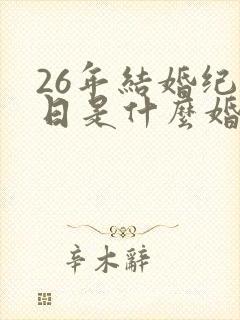 26年結婚纪
日是什麼婚
辛木辭